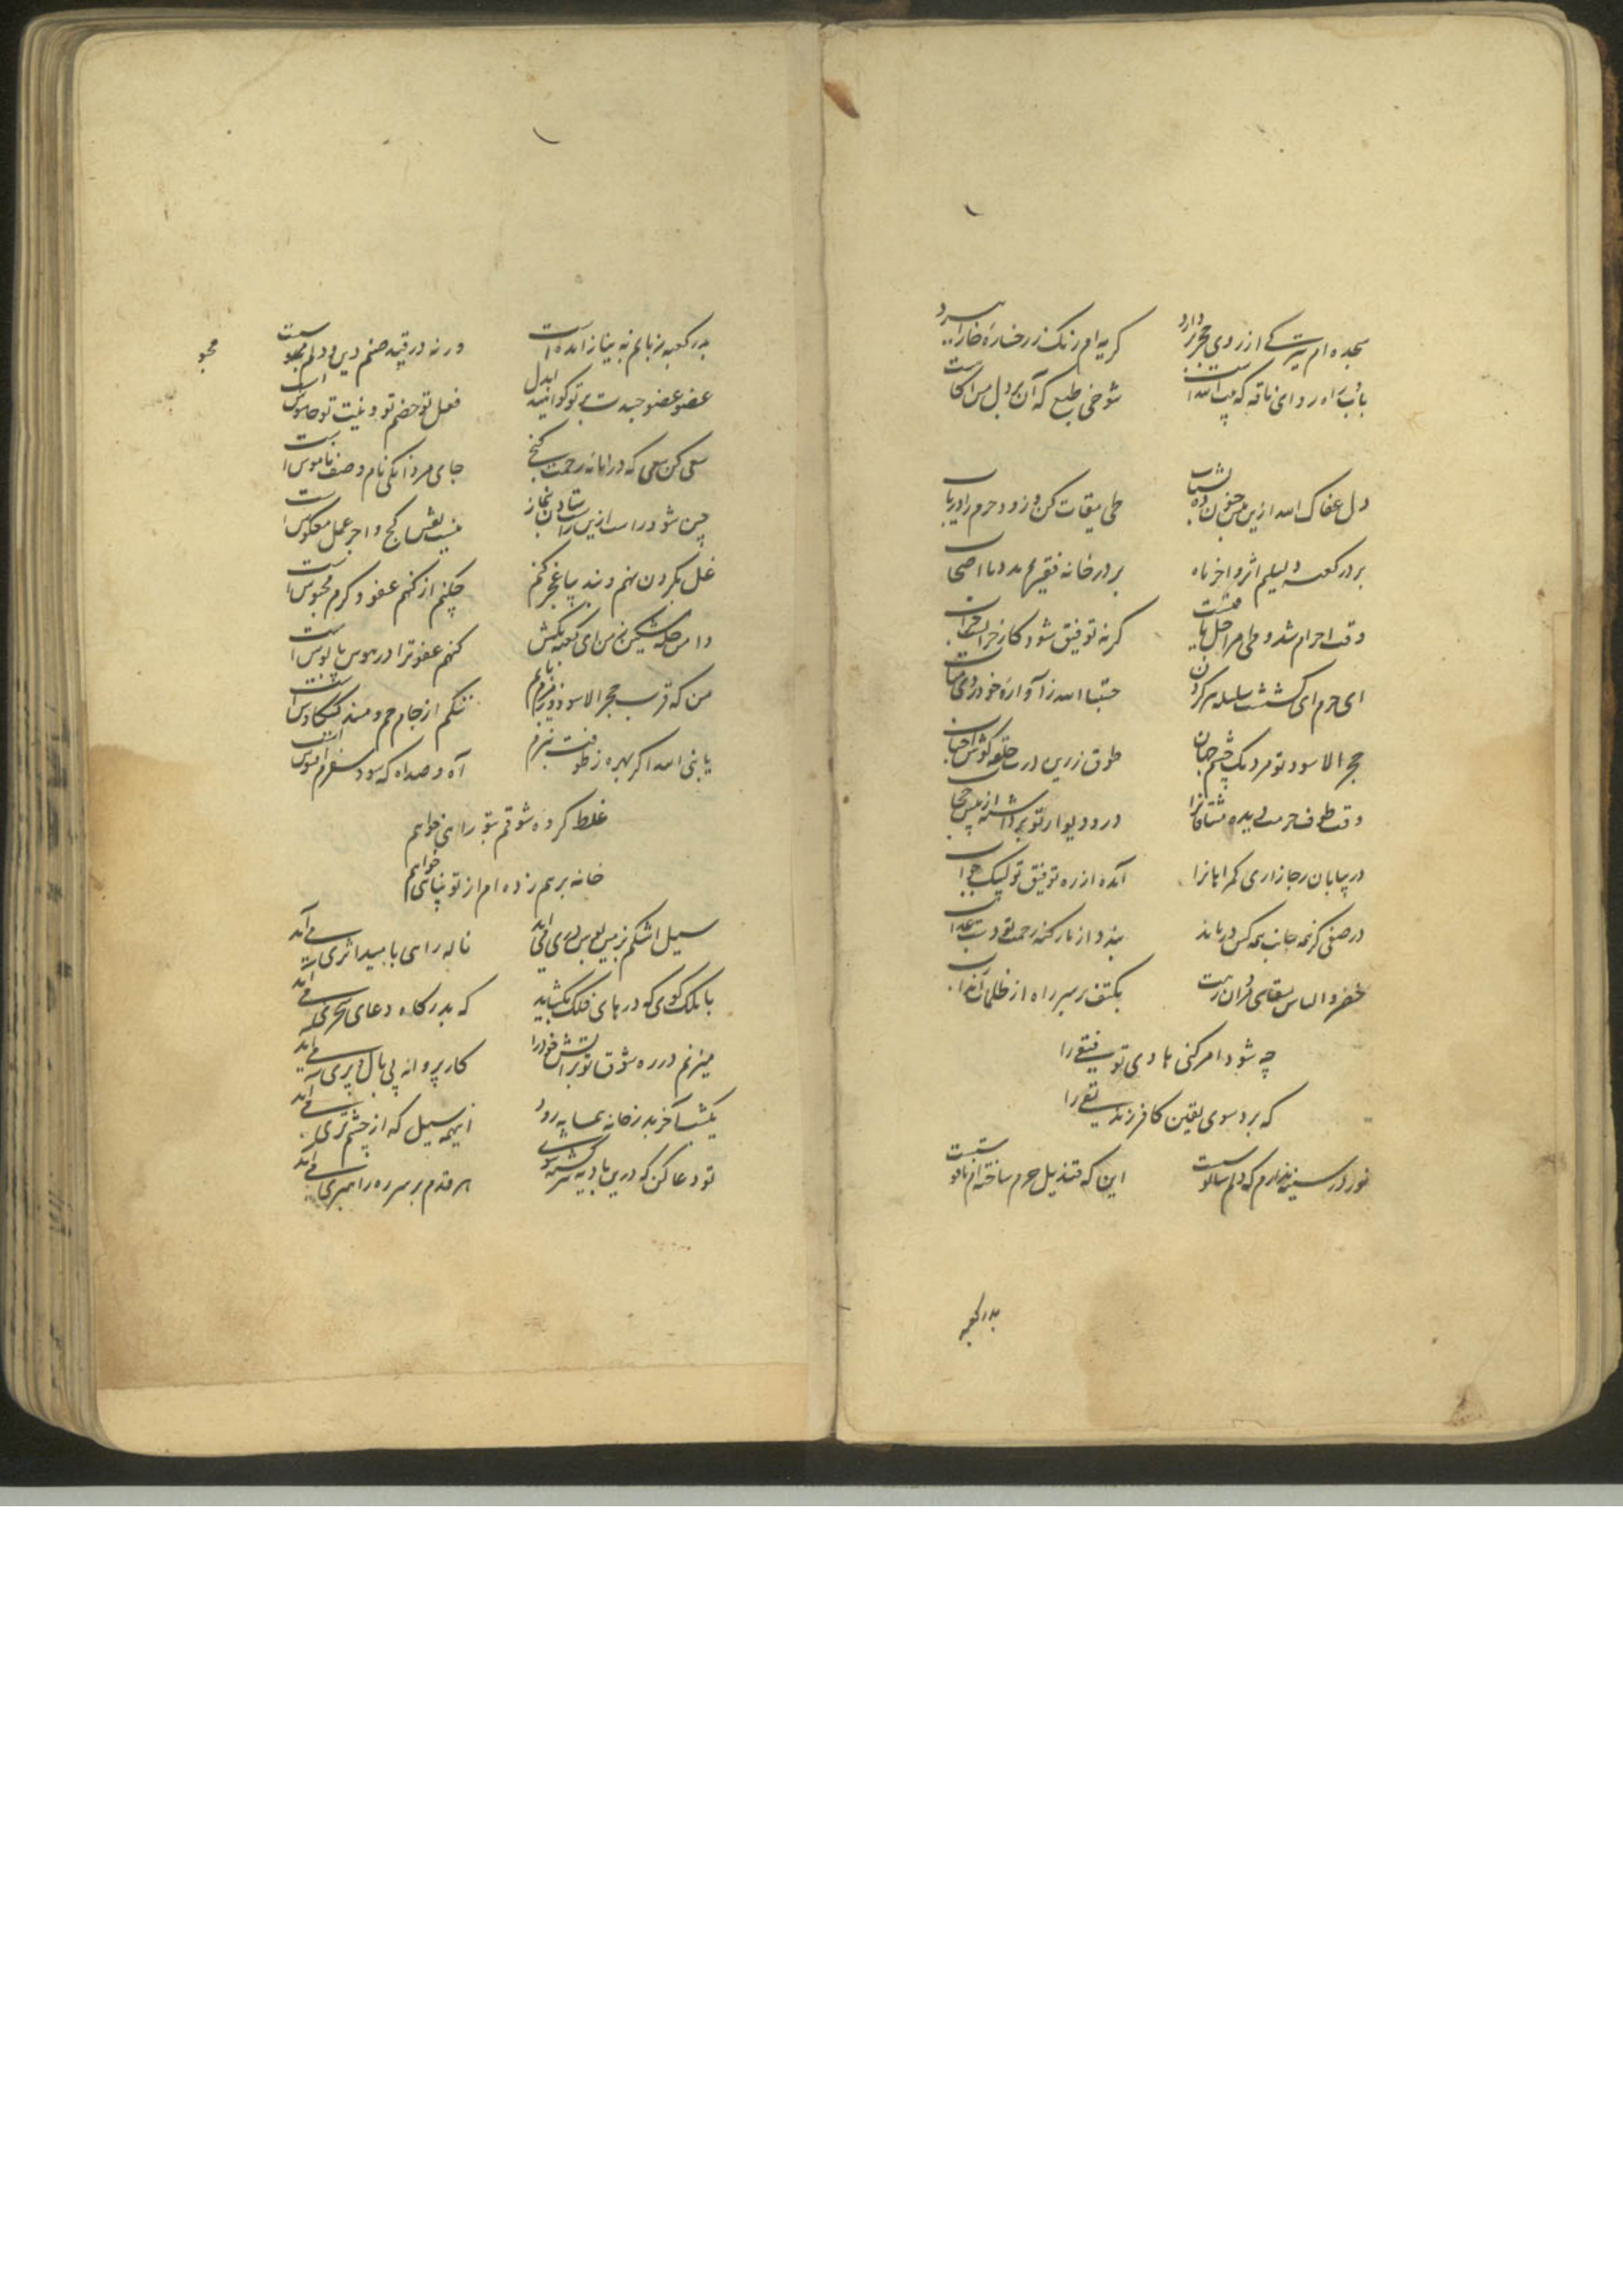 سجده ام تیرگی از روی حجر بردارد گریه ام رنگ ز رخساره خارا ببرد
باش آهسته رو ای ناقه که بیت الله است شوخی طبع که آن بر دل من
دل عفاک الله ازین خفتن ده بشتاب طی میقات کن و زود حرم را دریاب
بر در کعبه دلیلم اثر واخر ماه بر در خانه فقیر
وقت احرام شد و طی مراحل باقیست گر نه توفیق شود کار خرابست خراب
ای حرم ای کشش سلسله بر گردن حسبنا الله ز آواره خود روی متاب
حجر الاسود تو مردمک چشم جهان طوق زرین درت حلقه گوش احباب
وقت طوف حرمت دیده مشتاقانرا در و دیوار تو برداشته از پیش حجاب
در بیابان رجا زاری گمراهانرا آمده از ره توفیق تو لبیک جواب
در صفی کز همه جانب همه کس درماند بندد از بار گنه رحمت تو دست عذاب
خضر و الیاس سقای بکتف بر سر راه از ظلمات آمده اند
چه شود امر کنی هادی توفیقی را
که برد سوی یقین کافر زندیقی را
نور در سینه ندارم که دلم سالوسست این که قندیل حرم ساخته ام
بدر کعبه
بدر کعبه زبانم به نیاز آمده است ورنه در قید صنم دین و دلم محبوسست
عضو عضو جسدت بر تو گواهند ای دل فعل تو خصم تو و نیت تو جاسوس است
سعی کن سعی که در خانه رحمت کنج جای مردانگی نام و صف ناموس است
چین شود راست ازین راست ستادن بنماز نیست نقش کج و اجر عمل معکوس است
غل بگردن نهم و بند بپا عجز کنم چکنم از گنهم عفو و کرم محبوس است
دامن حله مشکین ز من ای کعبه مکش گنهم عفو ترا در هوس پابوس است
من که قرب حجر الاسود و زمزم یابم ننگم از جام جم و مسند کیکاوس است
یا نبی الله اگر بهره ز طوفت نبرم آه و صد آه که سود سفرم افسوس است
غلط کرده شوقم بتو راهی خواهم
خانه برهم زده ام از تو پناهی خواهم
سیل اشکم بزمین بوس دری می آید ناله راهی بامید اثری می آید
با ملک گوی که درهای فلک بگشاید که بدرگاه دعای سحری می آید
میزنم در ره شوق تو بر آتش خود را کار پروانه بی بال و پری می آید
یکشب آخر بدر خانه همسایه رود اینهمه سیل که از چشم تری می آید
تو دعا کن که درین بادیه سرگشته شوی هر قدم بر سر ره راهبری می آید